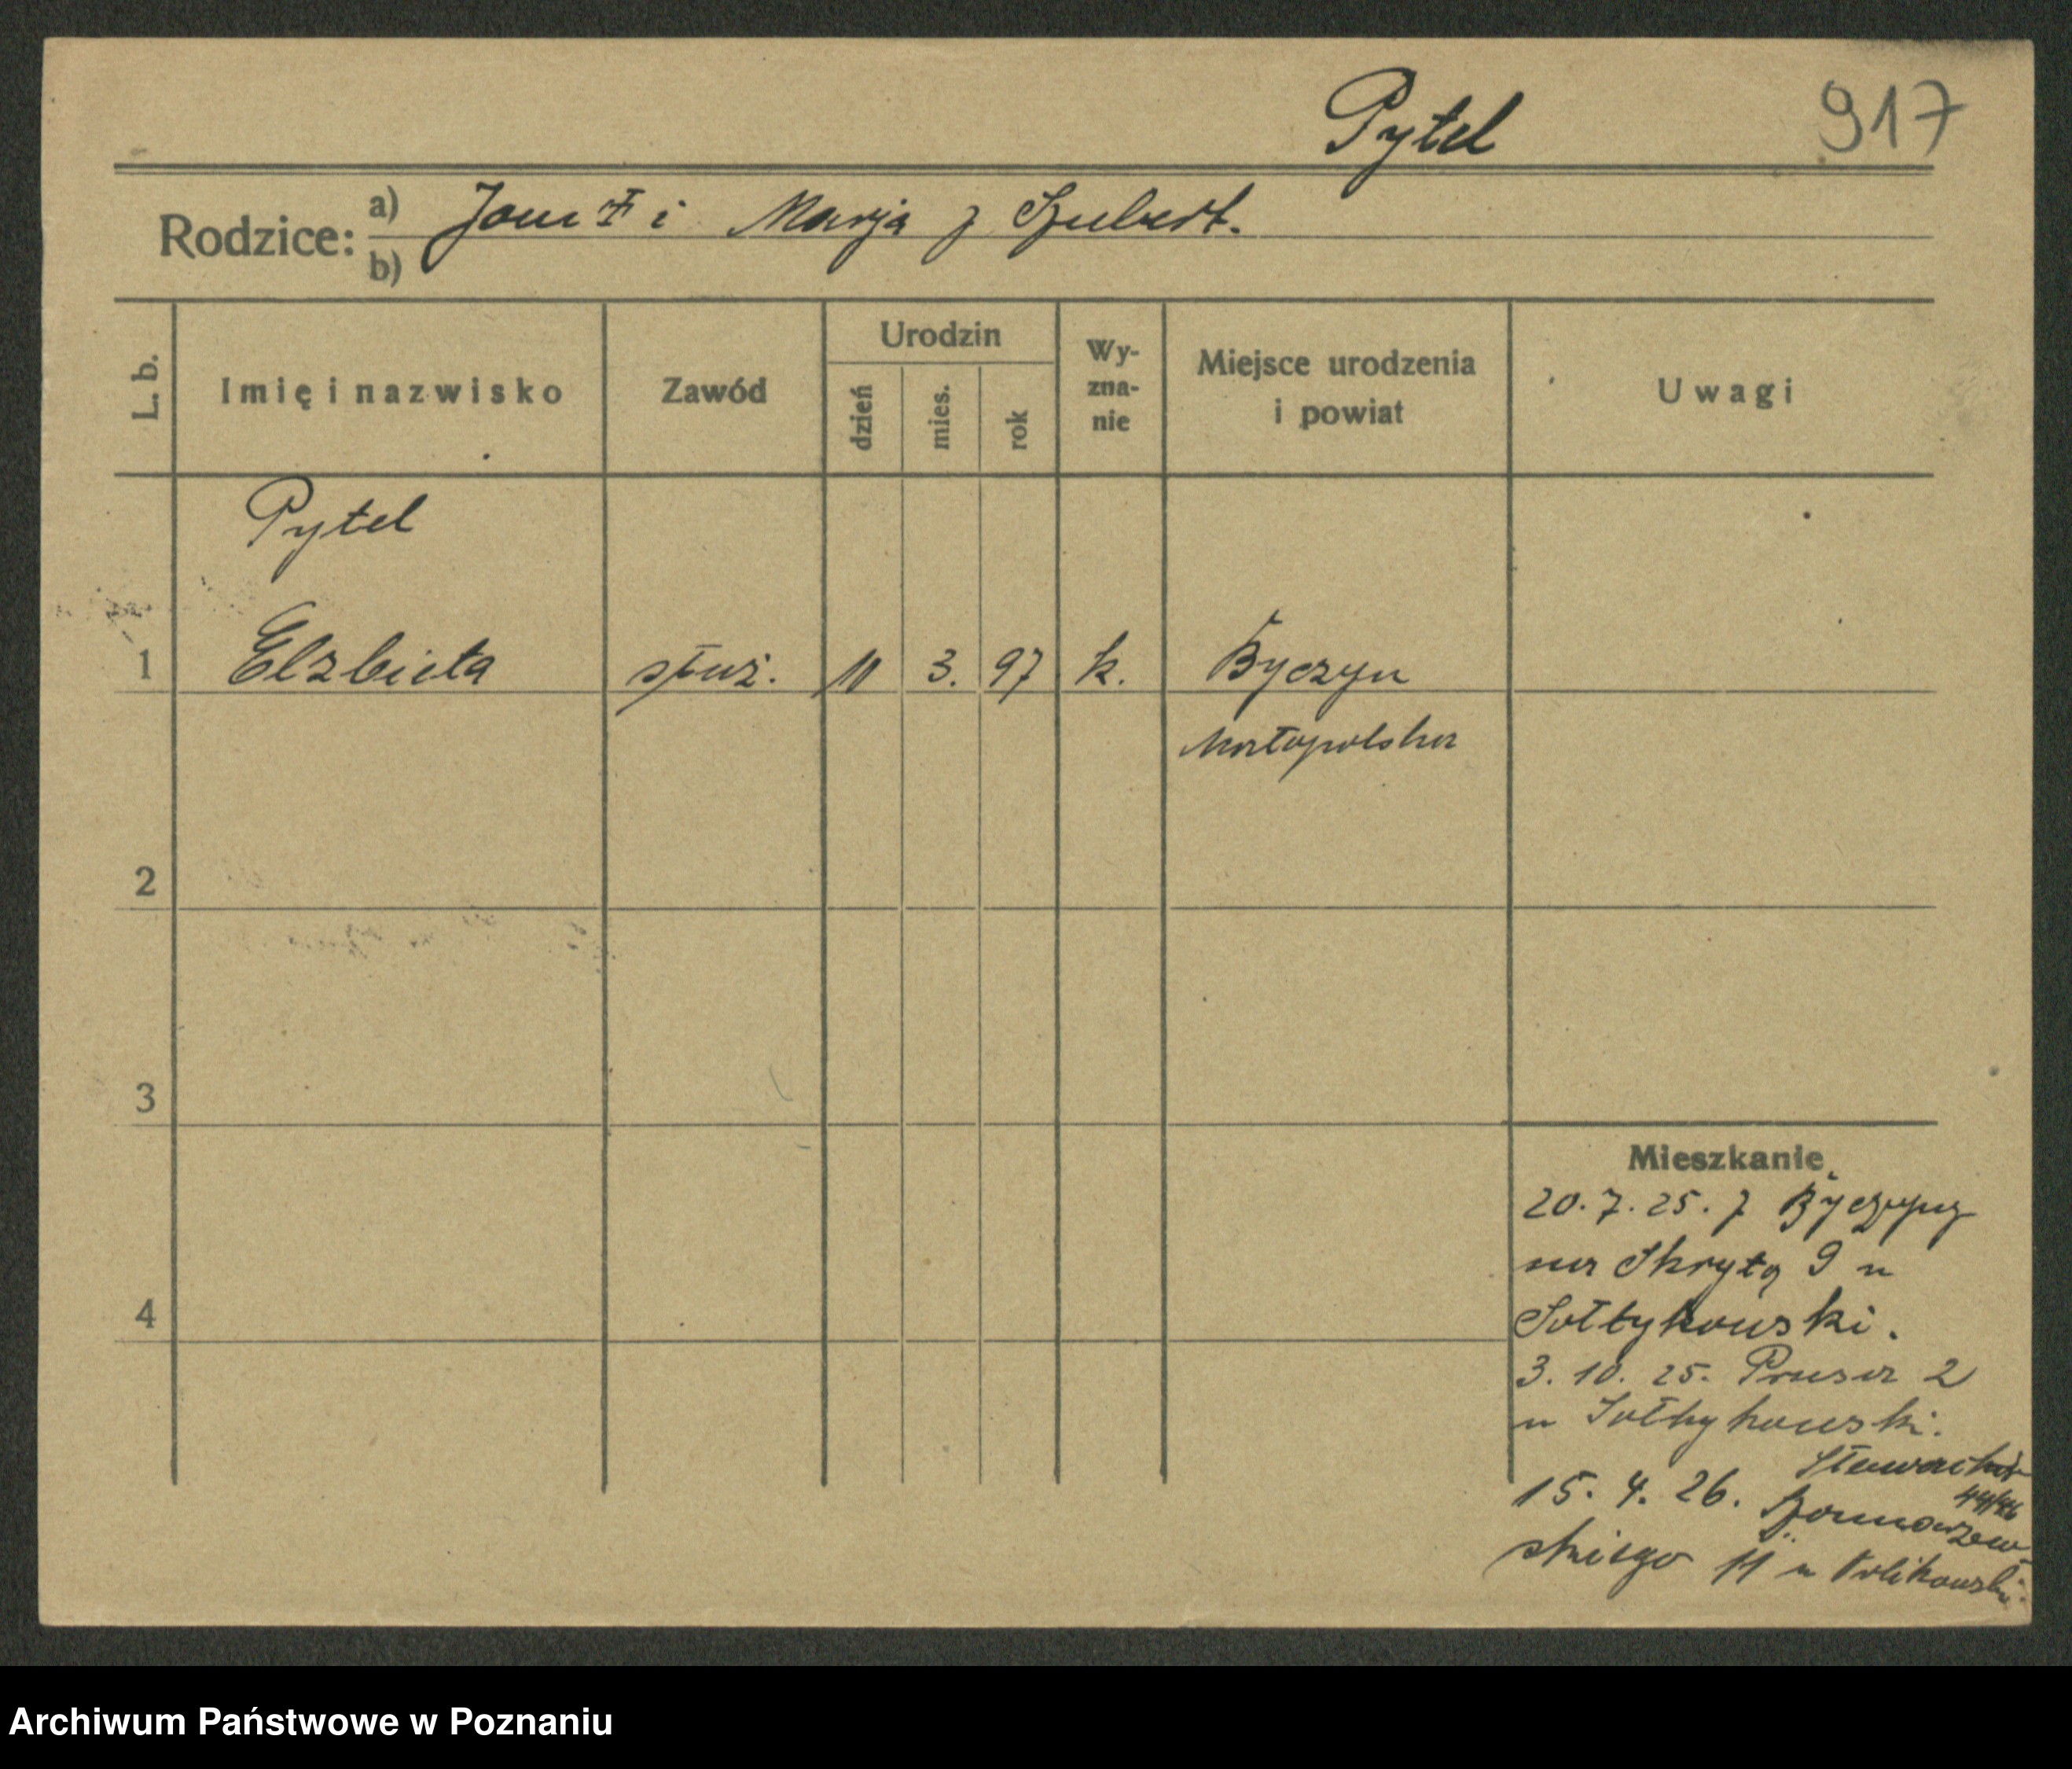 Pytel
917
Rodzice: a) Jan † i Marja z Szubert.
b)
L. b.
Imię i nazwisko
Zawód
Urodzin
dzień
mies.
rok
Wy-
zna-
nie
Miejsce urodzenia
i powiat
Uwagi
Pytel
1 Elzbieta służ. 10 3. 97 k. Byczyn
Małopolska
2
3
4
Mieszkanie
20. 7. 25. z Byczyny
na Skrytą 9 u
Sołtykowski.
3. 10. 25. Prusa 2
u Sołtykowski.
15. 4. 26.
skiego 11 u
Archiwum Państwowe w Poznaniu